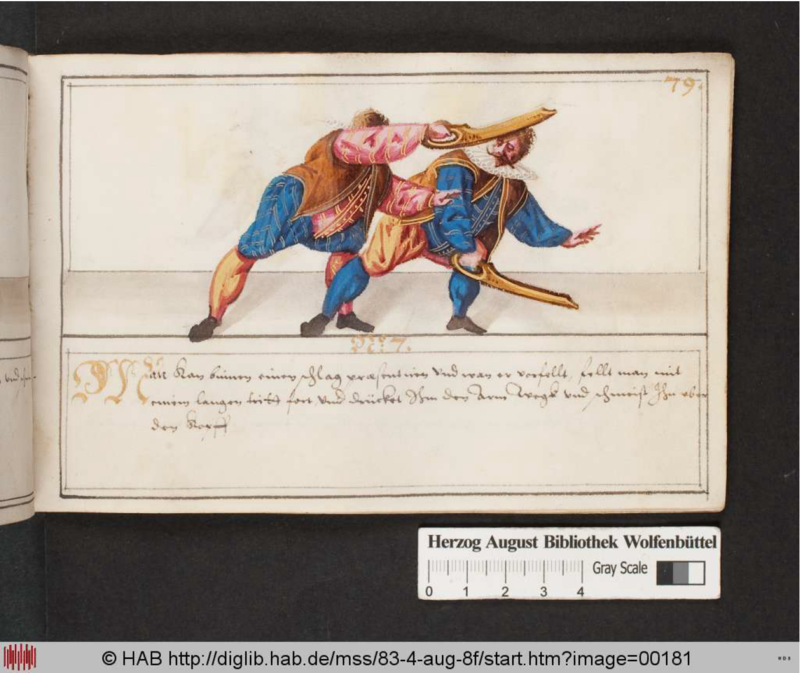 79.
No. 7.
Man Kan binnen einen schlag præsentiren Vnd wan er verfelt, fellt man mit
einem langen tritt fort Vnd drücket Ihm den Arm Wegk vnd schmeist Ihn vber
den Kopff
Vnd
Herzog August Bibliothek Wolfenbüttel
Gray Scale
0 1 2 3 4
© HAB http://diglib.hab.de/mss/83-4-aug-8f/start.htm?image=00181